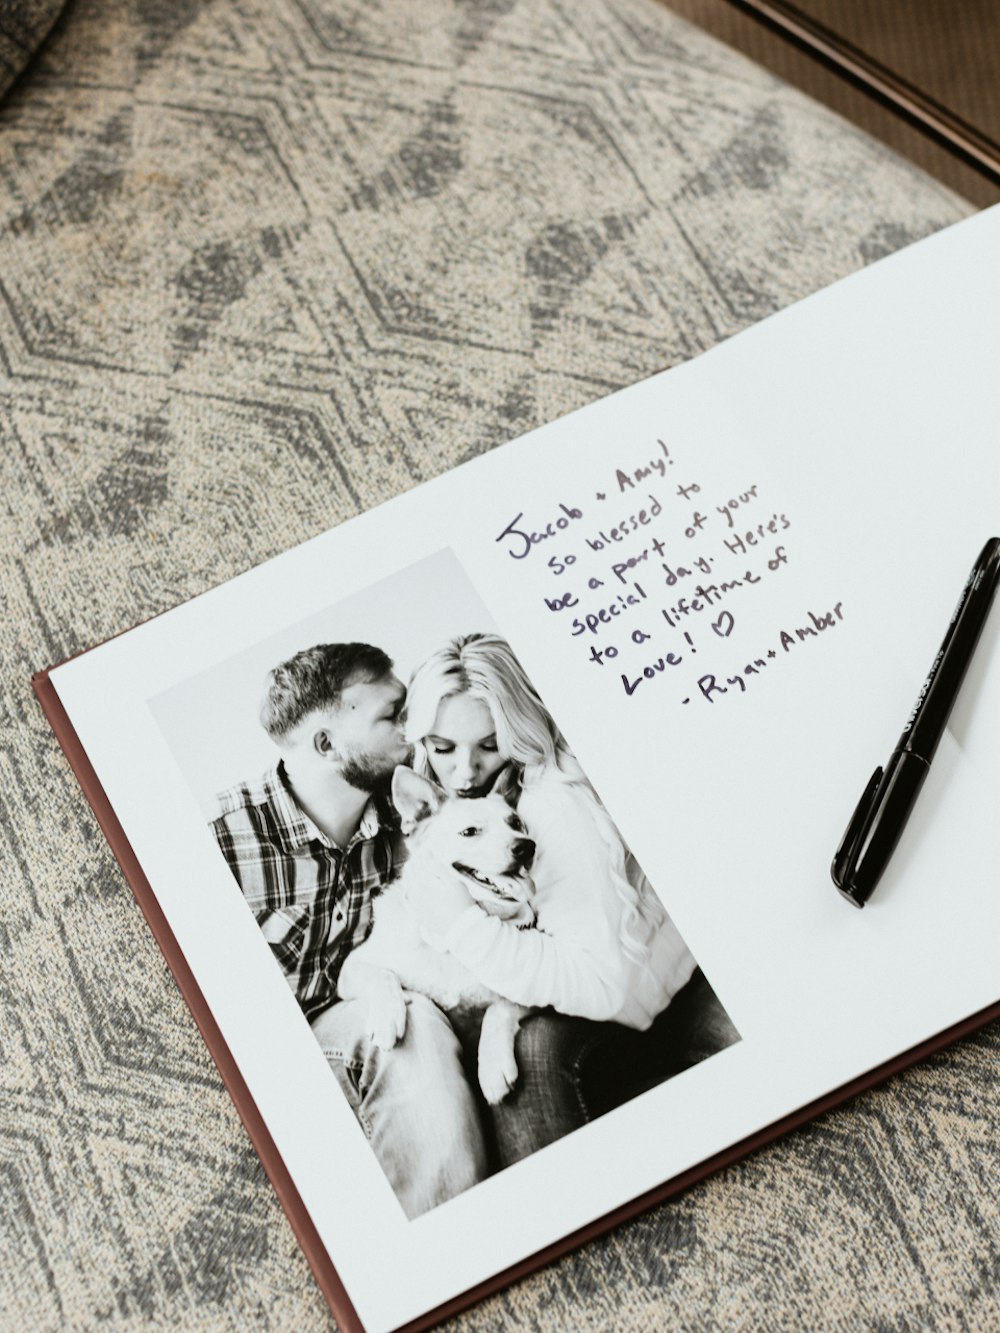 Jacob + Amy!
so blessed to
be a part of your
special day. Here's
to a lifetime of
Love! ♡
- Ryan + Amber